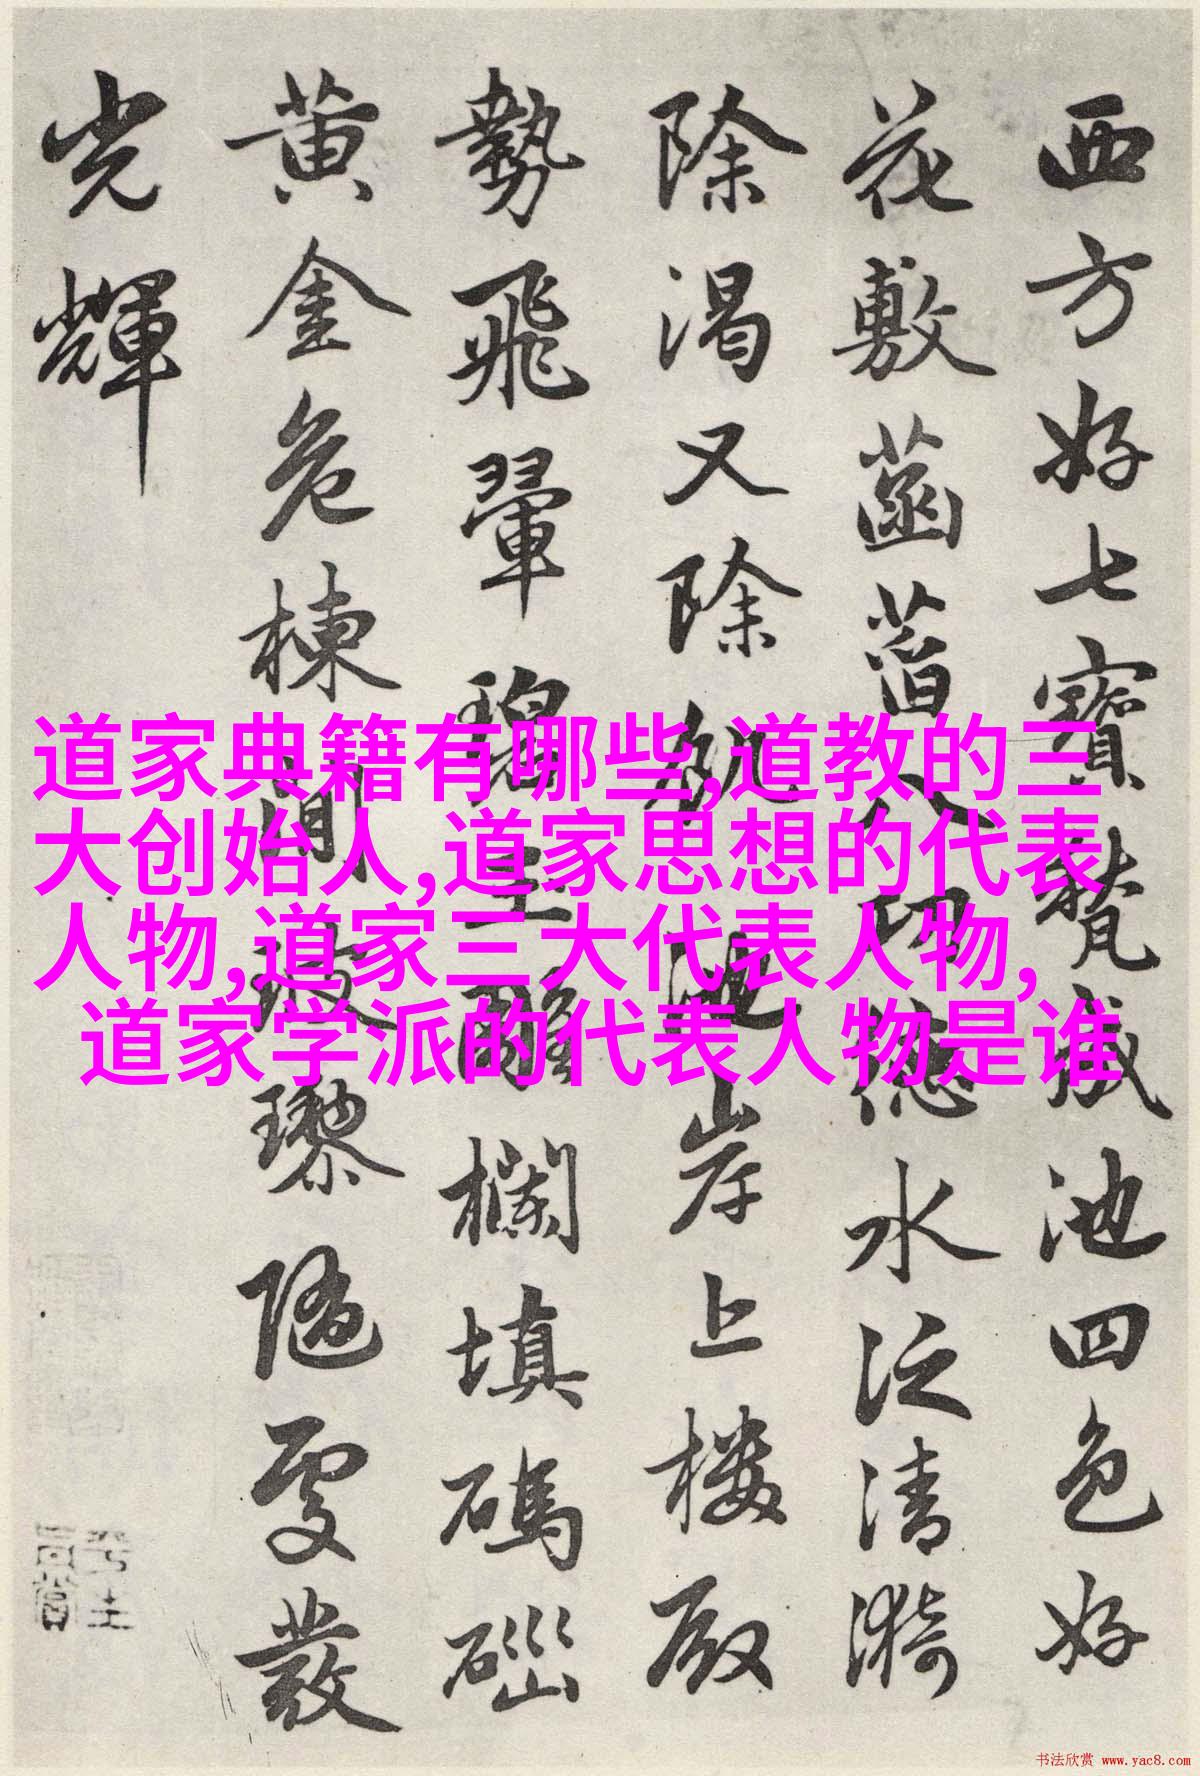 西方好七寶甃成池四色好
花敷菡萏八功德水泛清漪
除渴又除飢池岸上樓殿
勢飛翬碧玉雕欄填碼碯
黃金危棟間玻瓈隨處發
光輝
道家典籍有哪些,道教的三
大创始人,道家思想的代表
人物,道家三大代表人物,
道家学派的代表人物是谁
书法欣赏 www.yac8.com